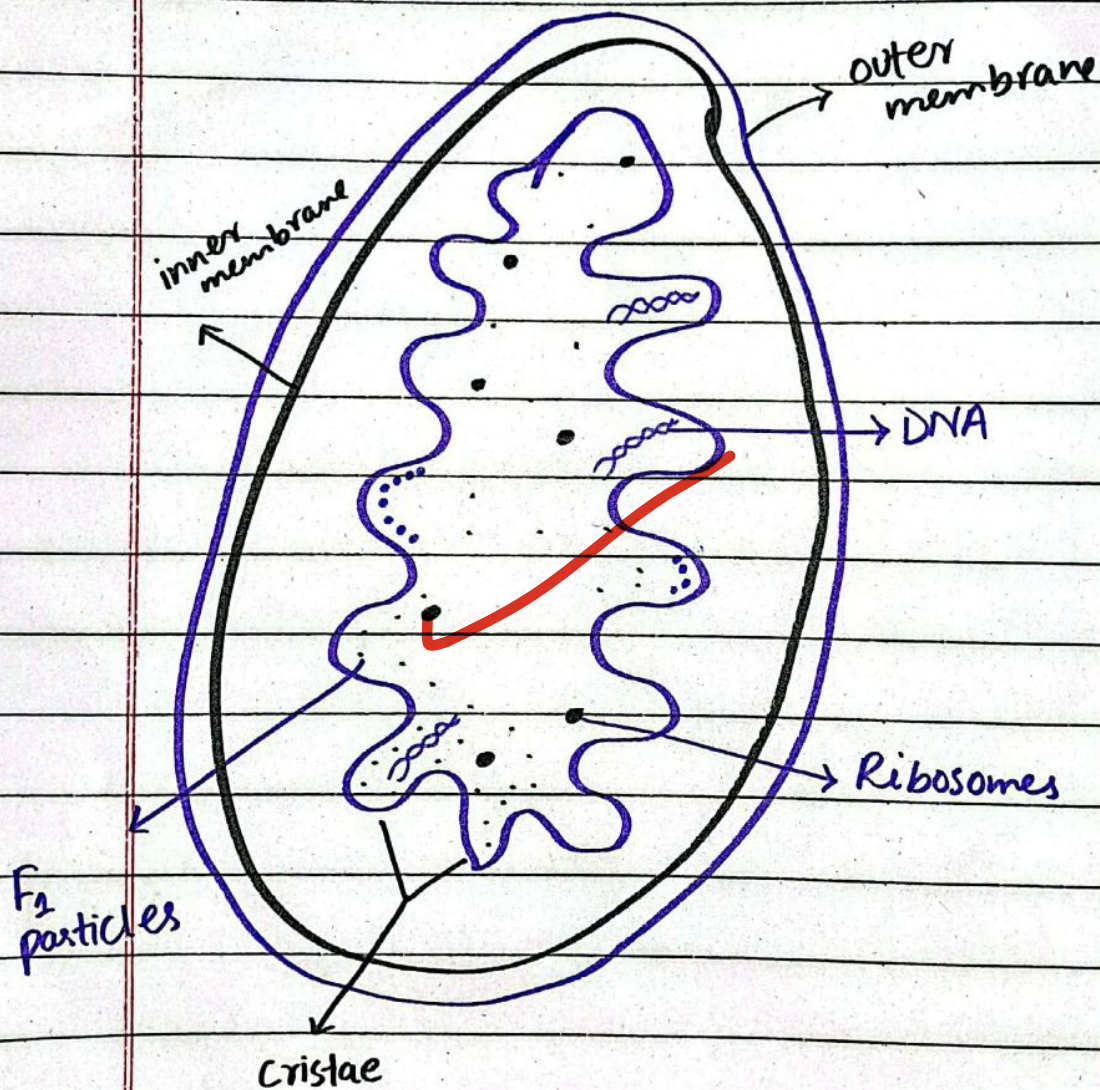 outer
membrane
inner
membrane
DNA
Ribosomes
F1
particles
cristae